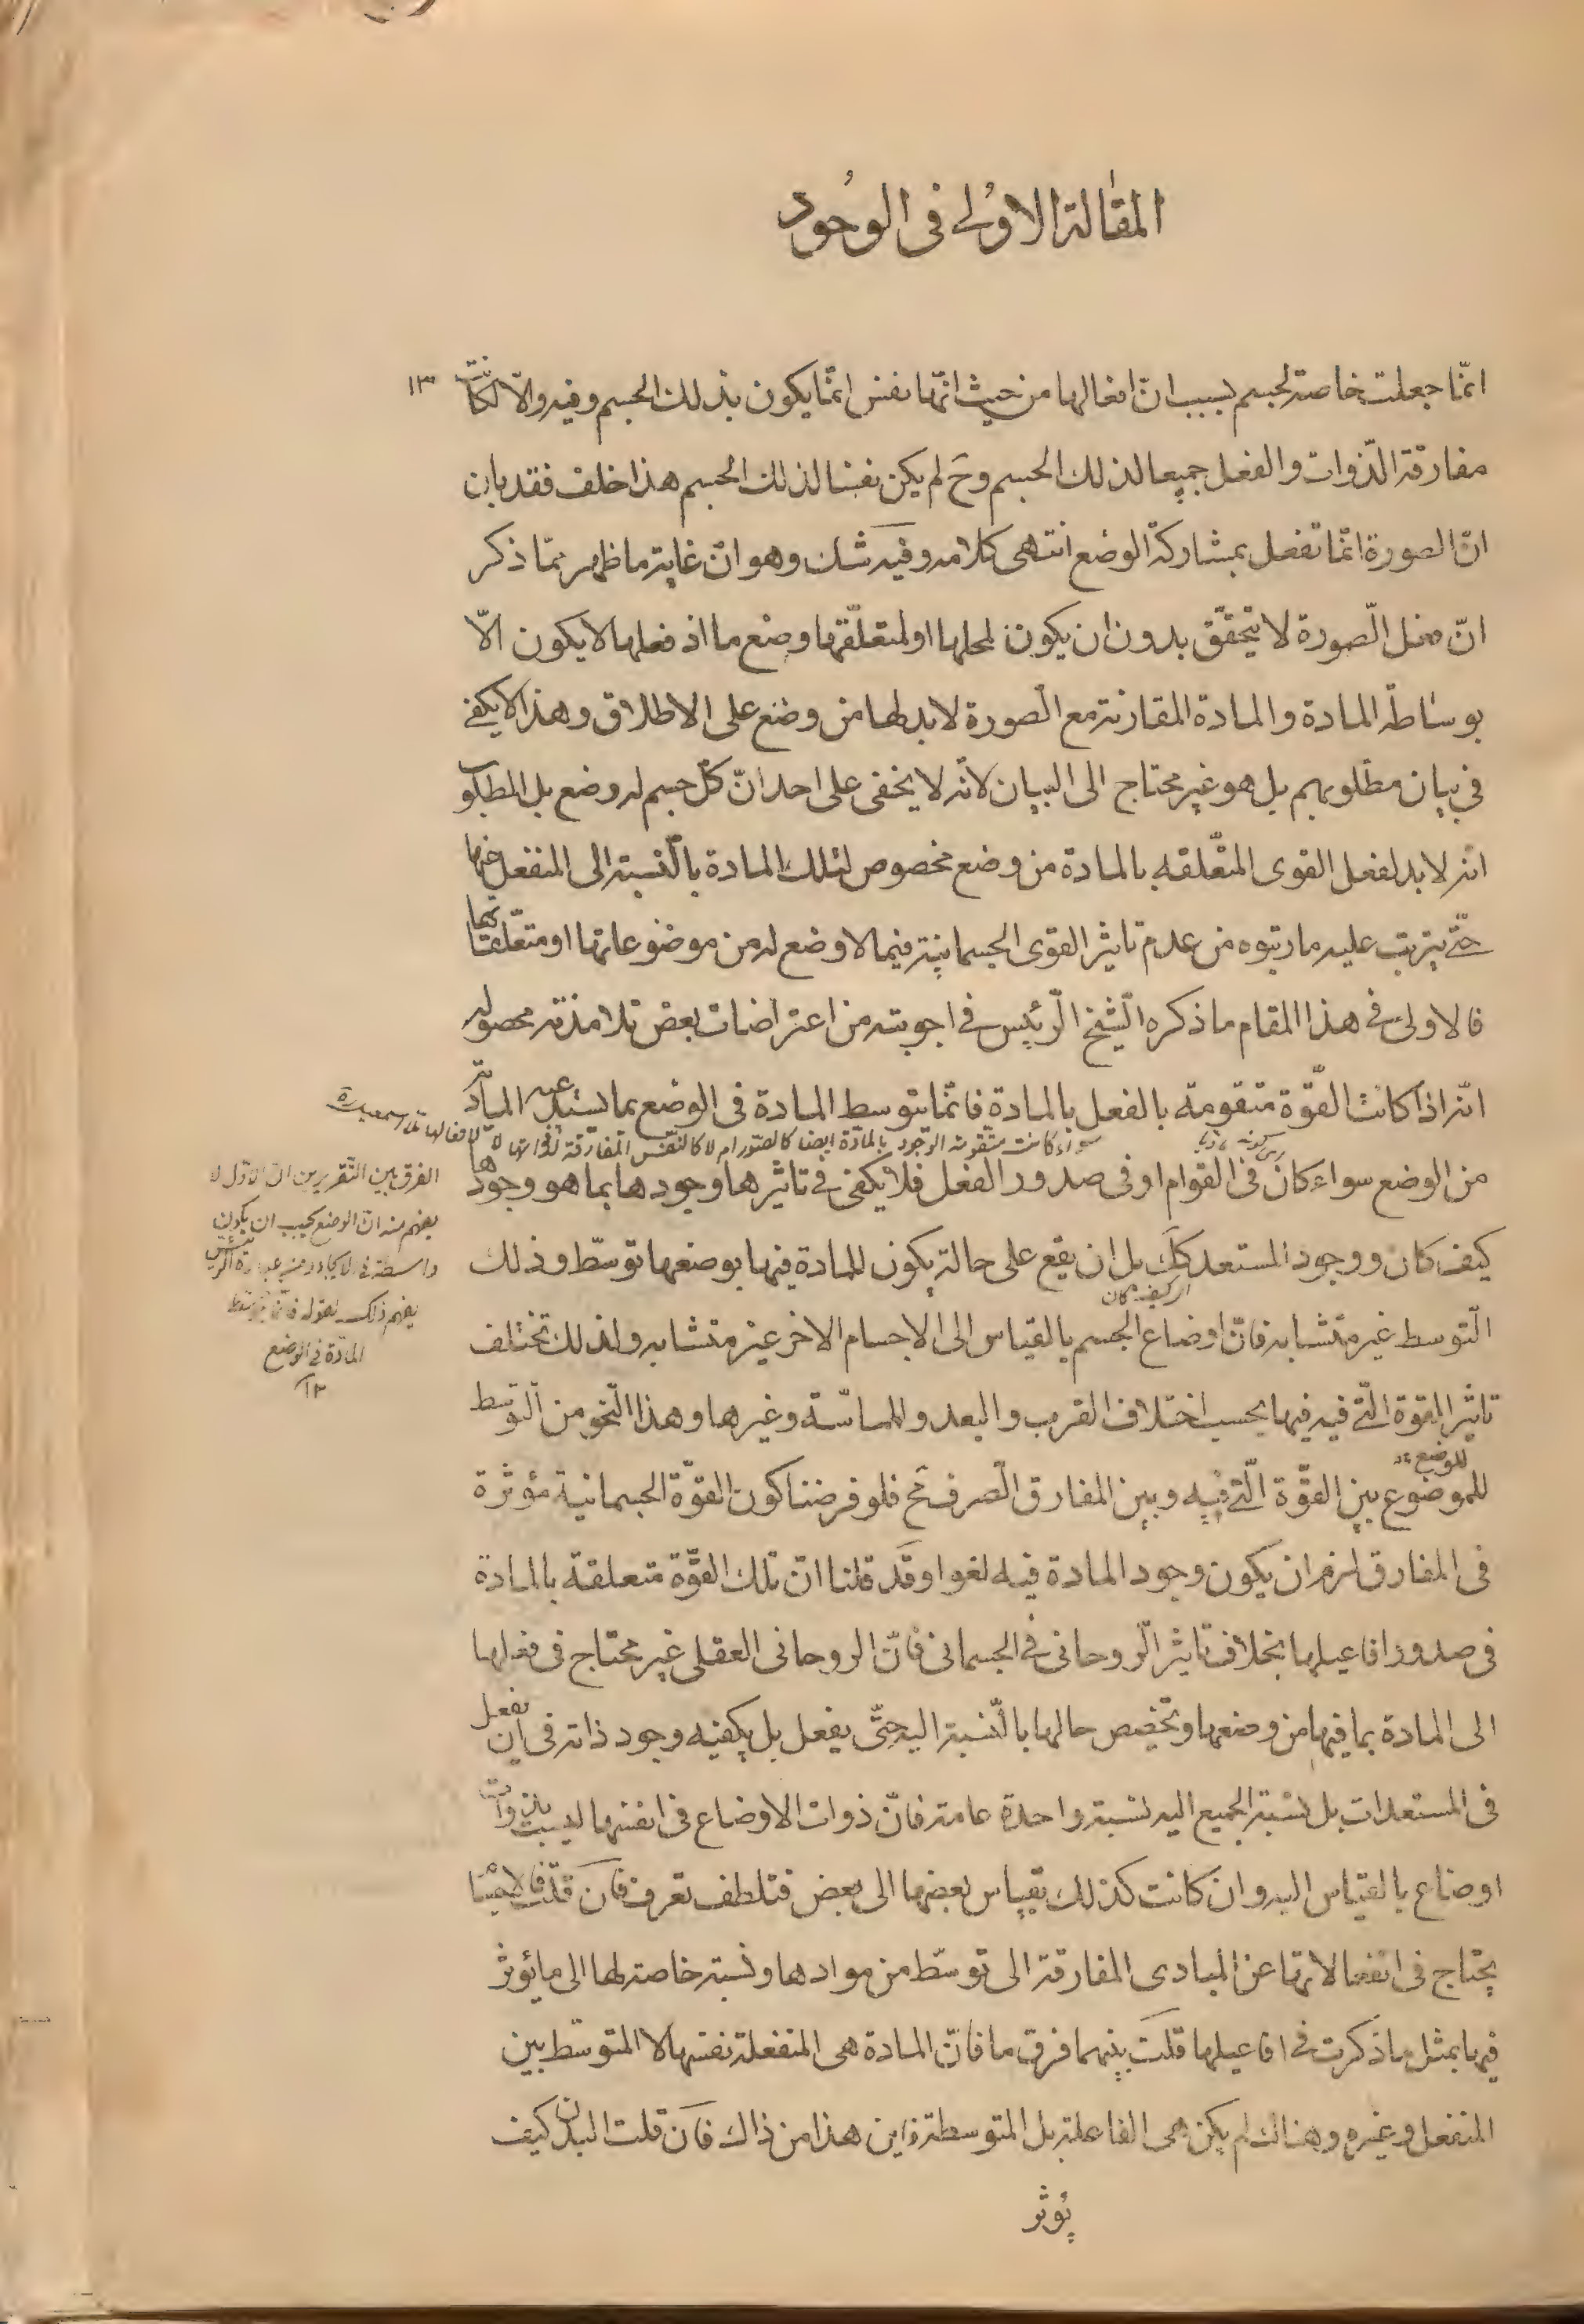 المقالة الاولى في الوجود
١٣
انّما جعلت خاصة لجسم بسبب انّ افعالها من حيث انّها نفس انّما يكون بذلك الجسم وفيه والّا لكانت
مفارقة الذّوات والفعل جميعا لذلك الجسم وحَ لم يكن نفسا لذلك الجسم هذا خلف فقد بان
انّ الصورة انّما تفعل بمشاركة الوضع انتهى كلامه وفيه شك وهو انّ غاية ما ظهر ممّا ذكر
انّ فعل الصّورة لا يتحقّق بدون ان يكون لمحلها او لمتعلّقها وضع ما اذ فعلها لا يكون الّا
بوساطة المادة والمادة المقارنة مع الصّورة لابد لها من وضع على الاطلاق وهذا لا يكفى
في بيان مطلوبهم بل هو غير محتاج الى البيان لانّه لا يخفى على احد انّ كلّ جسم له وضع بل المطلوب
انّه لابد لفعل القوى المتعّلقه بالمادة من وضع مخصوص لتلك المادة بالنّسبة الى المنفعل عنها
حتّى يترتب عليه ما رتبوه من عدم تاثير القوى الجسمانية فيما لا وضع له من موضوعاتها او متعلّقاتها
فالاولى في هذا المقام ما ذكره الشّيخ الرّئيس في اجوبته من اعتراضات بعض تلامذته محصوله
انّه اذا كانت القّوة متقومة بالفعل بالمادة فانّما بتوسط المادة في الوضع بما يستدعيه المادّية
سواء كانت متقومة الوجود بالمادّة ايضا كالصور ام لا كالنفس المفارقة لذواتها لا لافعالها
من الوضع سواء كان في القوام او في صدور الفعل فلا يكفى في تاثيرها وجودها بما هو وجودها
كيف كان ووجود المستعد كَكَ بل ان يقع على حالة يكون للمادة فيها بوضعها توسّط وذلك
اى كيف كان
التّوسط غير متشابه فانّ اوضاع الجسم بالقياس الى الاجسام الاخر غير متشابه ولذلك تختلف
تاثير القوة الّتى فيه فيها بحسب اختلاف القرب والبعد والمماسّة وغيرها وهذا النّحو من التّوسّط
للوضع
للموضوع بين القّوة الّتى فيه وبين المفارق الصّرف مح فلو فرضنا كون القوّة الجسمانية مؤثرة
في المفارق لزم ان يكون وجود المادة فيه لغوا وقد قلنا انّ تلك القوّة متعلقة بالمادة
في صدور افاعيلها بخلاف تاثير الرّوحانى في الجسمانى فانّ الروحانى العقلى غير محتاج في فعلها
الى المادة بما فيها من وضعها وتخصّص حالها بالنّسبة اليه حتّى يفعل بل يكفيه وجود ذاته في ان يفعل
في المستعدات بل نسبة الجميع اليه نسبة واحدة عامة فانّ ذوات الاوضاع في انفسها ليست بذوات
اوضاع بالقياس اليه وان كانت كذلك بقياس بعضها الى بعض فتلطف تعرف فان قلت فالاجسام
يحتاج في انفعالاتها عن المبادى المفارقة الى توسّط من موادها ونسبة خاصة لها الى ما يؤثر
فيها بمثل ما ذكرت في افاعيلها قلت بينهما فرق ما فانّ المادة هى المنفعلة نفسها لا المتوسّط بين
المنفعل وغيره وهناك لم يكن هى الفاعلة بل المتوسطة فاين هذا من ذاك فان قلت البدن كيف
يؤثر
الفرق بين التقريرين ان الاول لا
يفهم منه انّ الوضع يجب ان يكون
واسطة في الايجاد ومن عبارة الرئيس
يفهم ذلك لقوله فانّما بتوسّط
المادّة في الوضع
١٢